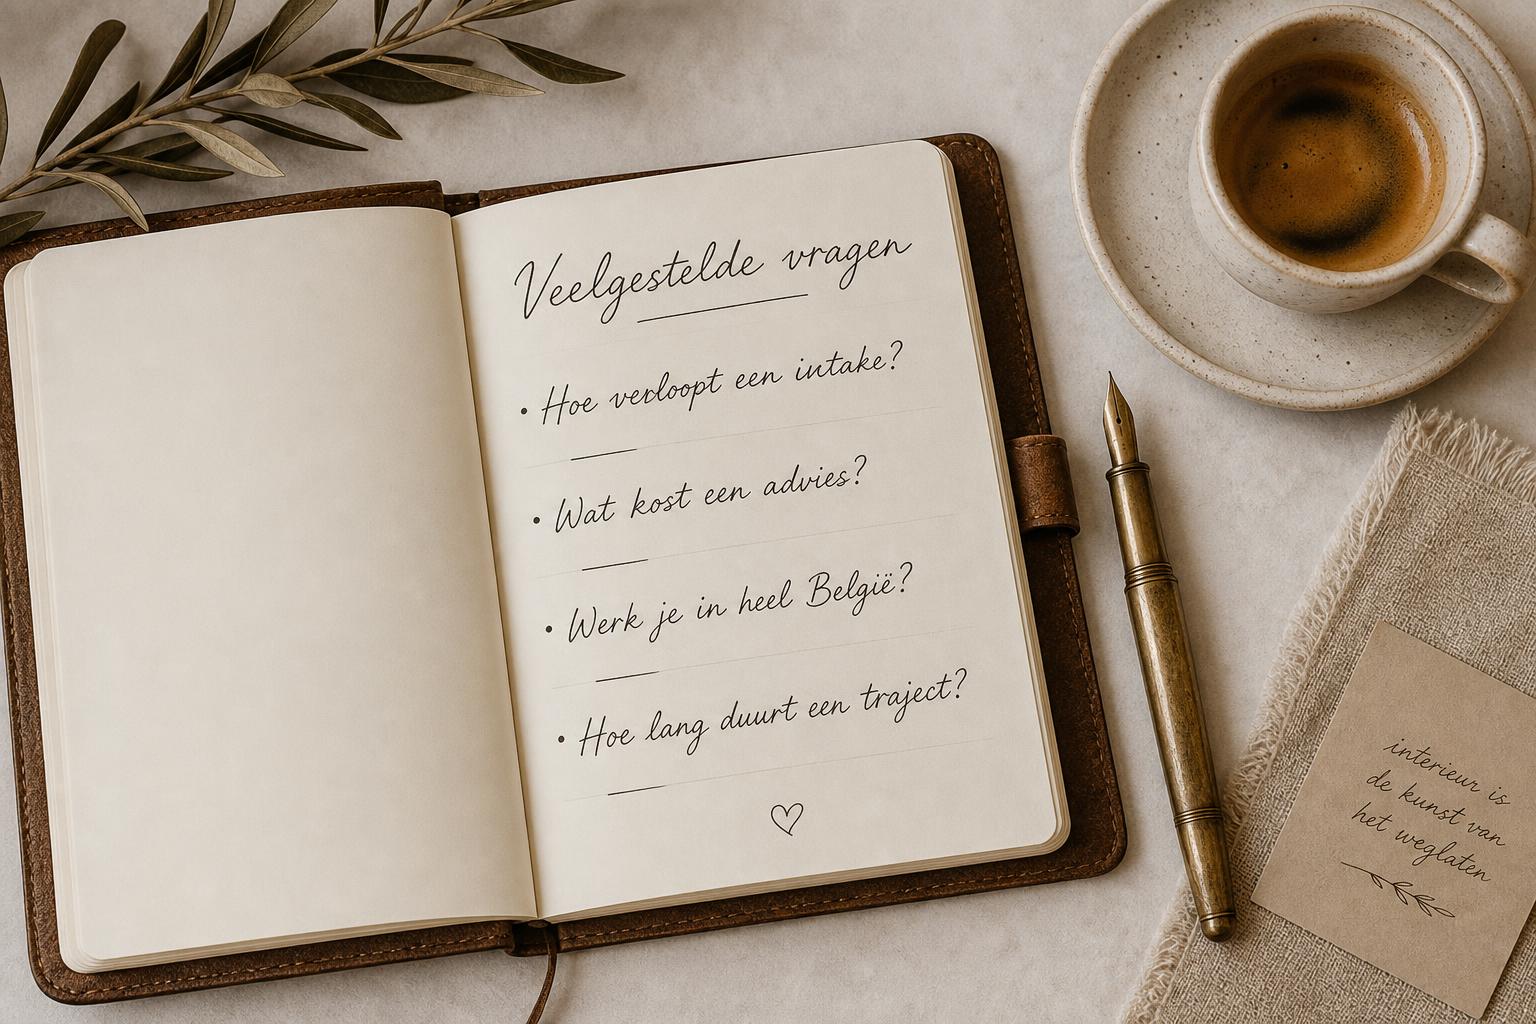 Veelgestelde vragen
• Hoe verloopt een intake?
• Wat kost een advies?
• Werk je in heel België?
• Hoe lang duurt een traject?
interieur is
de kunst van
het weglaten